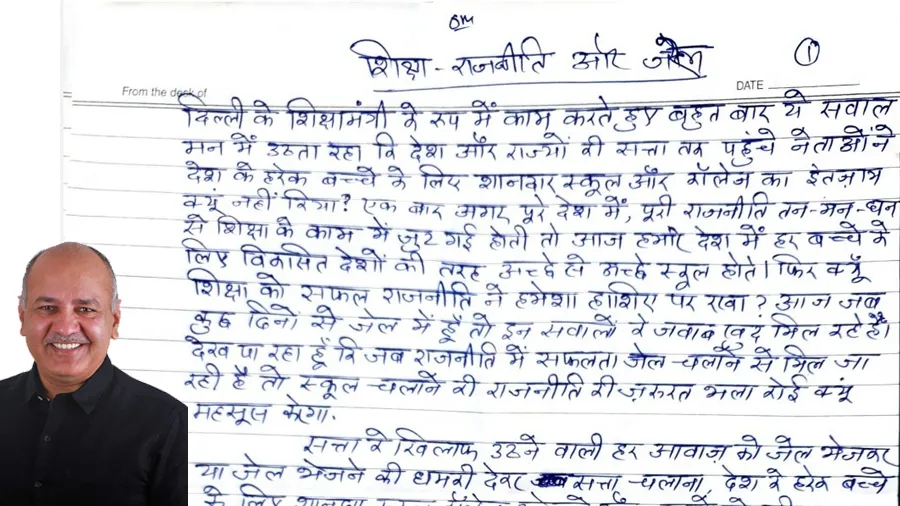 ॐ
①
शिक्षा - राजनीति और जेल
From the desk of
DATE
दिल्ली के शिक्षामंत्री के रूप में काम करते हुए बहुत बार ये सवाल
मन में उठता रहा कि देश और राज्यों की सत्ता तक पहुंचे नेताओं ने
देश के हरेक बच्चे के लिए शानदार स्कूल और कॉलेज का इंतज़ाम
क्यूं नहीं किया? एक बार अगर पूरे देश में, पूरी राजनीति तन-मन-धन
से शिक्षा के काम में जुट गई होती तो आज हमारे देश में हर बच्चे के
लिए विकसित देशों की तरह अच्छे से अच्छे स्कूल होते। फिर क्यूँ
शिक्षा को सफल राजनीति ने हमेशा हाशिए पर रखा? आज जब
कुछ दिनों से जेल में हूँ तो इन सवालों के जवाब खुद मिल रहे हैं।
देख पा रहा हूँ कि जब राजनीति में सफलता जेल चलाने से मिल जा
रही है तो स्कूल चलाने की राजनीति की ज़रुरत भला कोई क्यूं
महसूस करेगा.
सत्ता के खिलाफ उठने वाली हर आवाज़ को जेल भेजकर
या जेल भेजने की धमकी देकर सत्ता चलाना, देश के हरेक बच्चे
के लिए